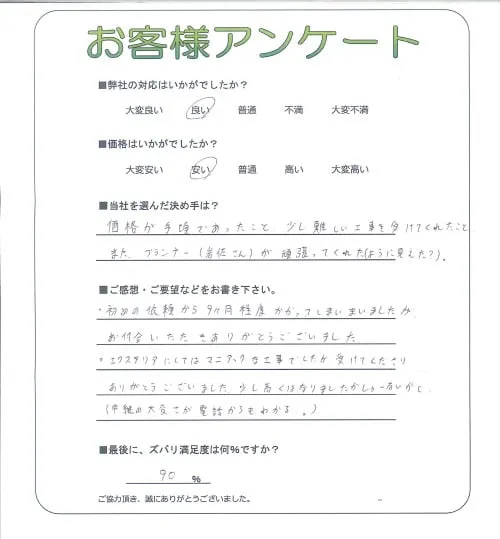 お客様アンケート
■弊社の対応はいかがでしたか？
大変良い 良い 普通 不満 大変不満
■価格はいかがでしたか？
大変安い 安い 普通 高い 大変高い
■当社を選んだ決め手は？
価格が手頃であったこと、少し難しい工事を受けてくれたこと
また、プランナー(岩佐さん)が頑張ってくれた(ように見えた?)。
■ご感想・ご要望などをお書き下さい。
・初めの依頼から9ヶ月程度かかってしまいましたが
お付合いいただきありがとうございました。
・エクステリアにしてはマニアックな工事でしたが受けてくださり
ありがとうございました、少し高くはなりましたがしょーないかと、
(中継の大変さが電話からもわかる 。)
■最後に、ズバリ満足度は何%ですか？
90 %
ご協力頂き、誠にありがとうございました。